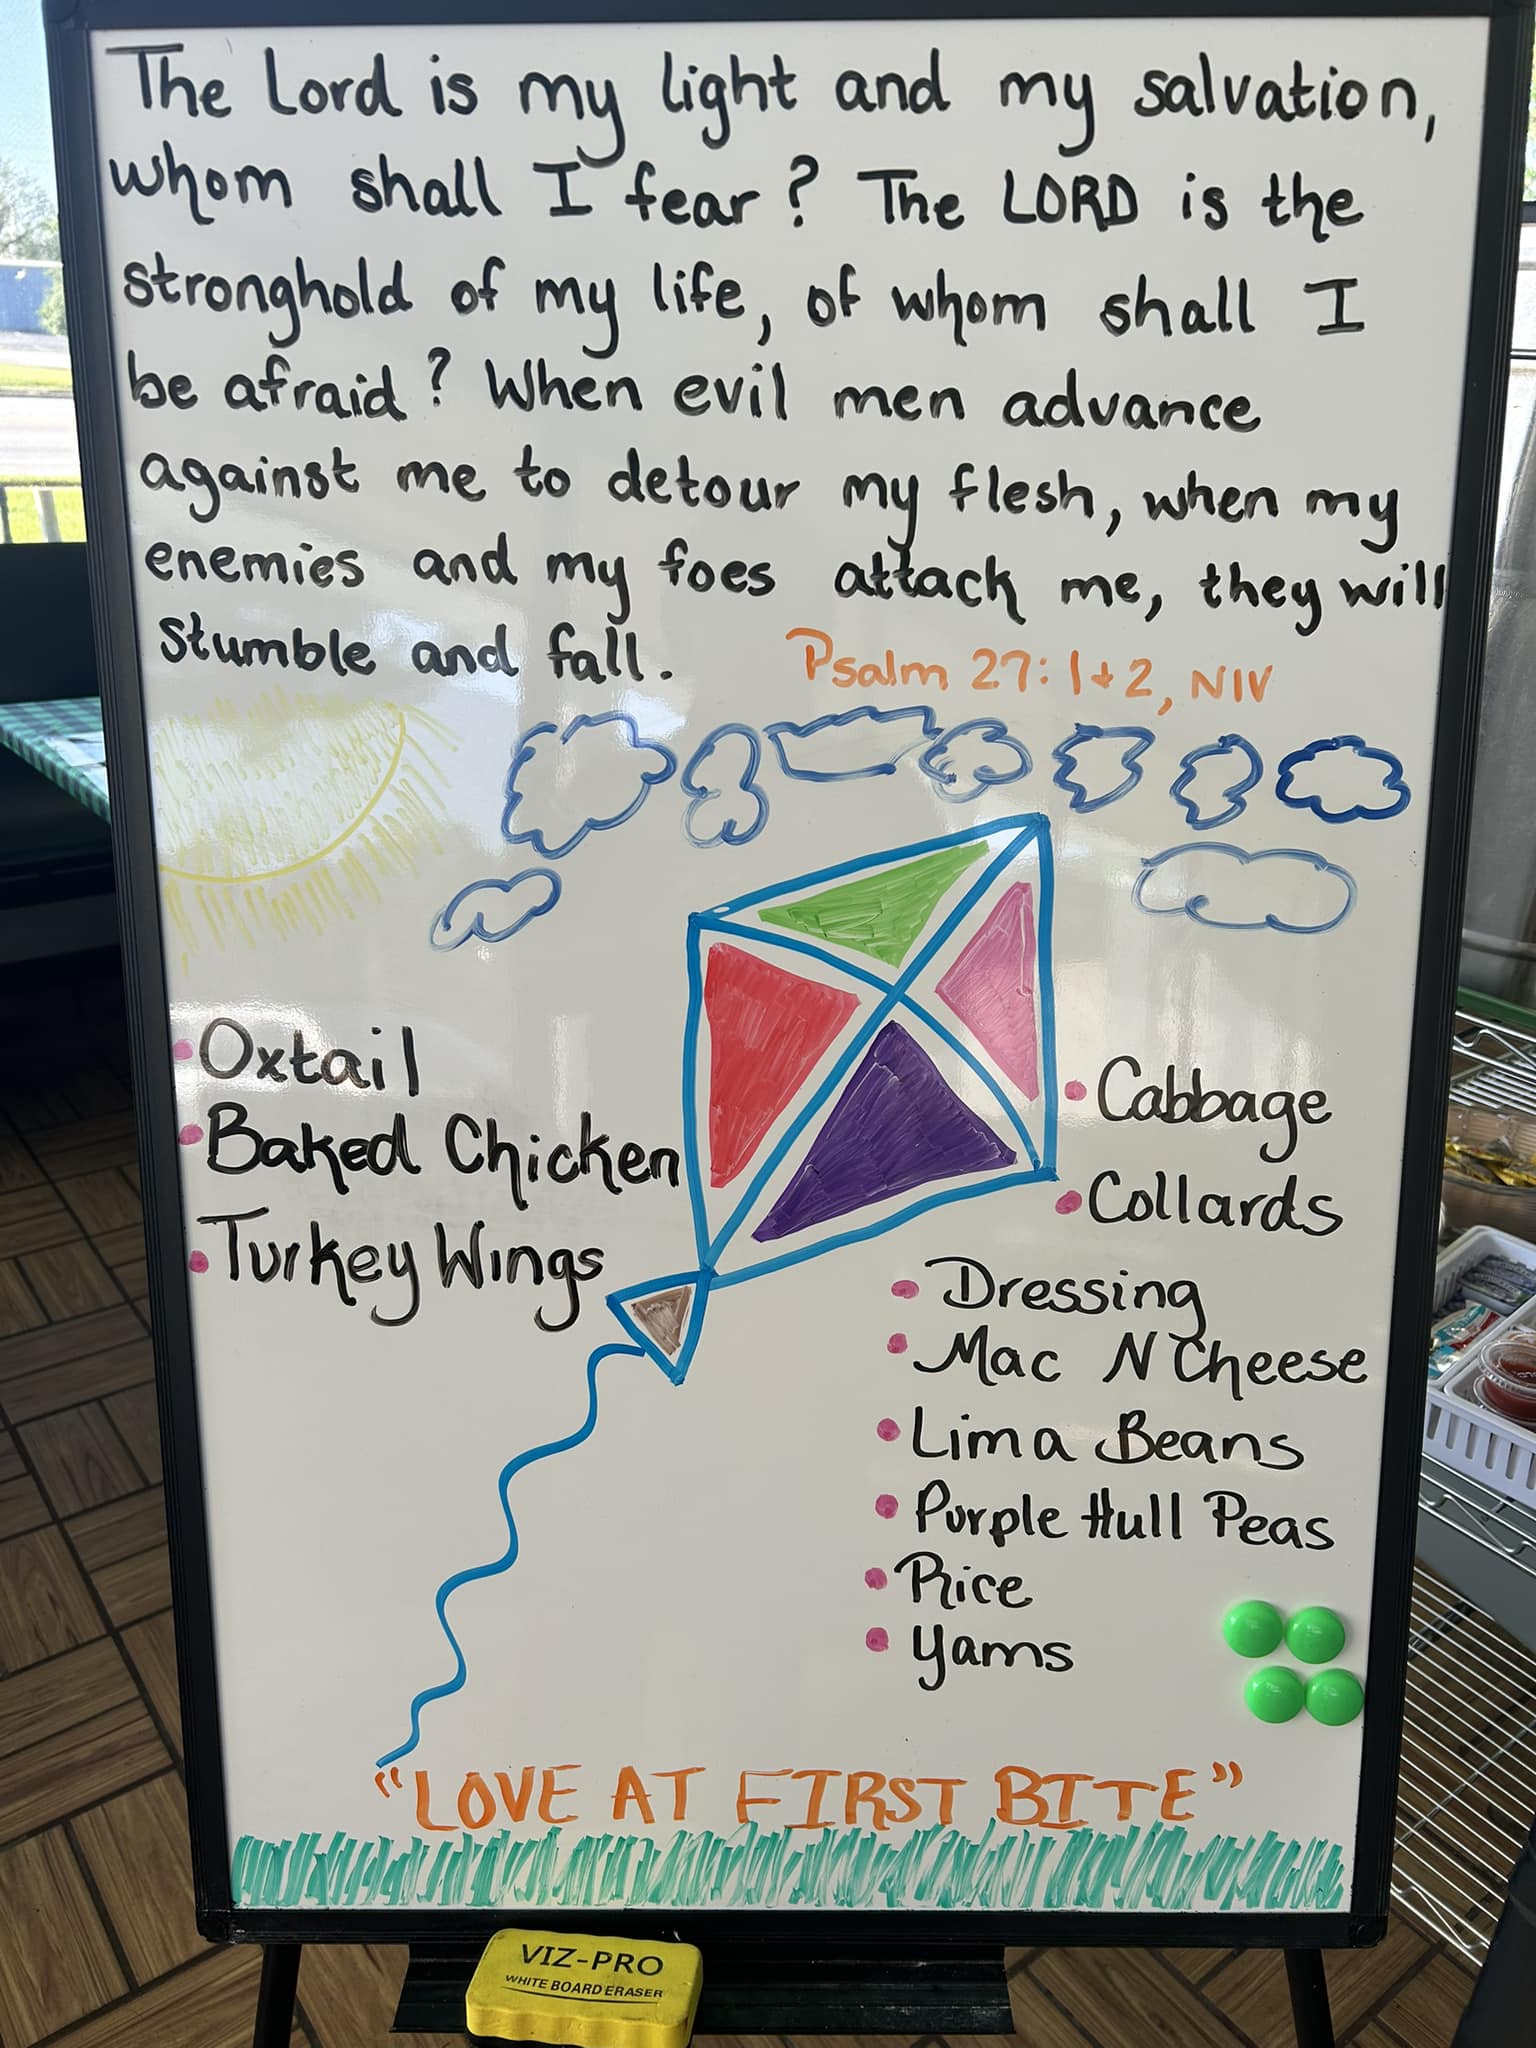 The Lord is my light and my salvation,
whom shall I fear? The LORD is the
stronghold of my life, of whom shall I
be afraid? When evil men advance
against me to detour my flesh, when my
enemies and my foes attack me, they will
stumble and fall.
Psalm 27:1+2, NIV
• Oxtail
• Baked Chicken
• Turkey Wings
• Cabbage
• Collards
• Dressing
• Mac N Cheese
• Lima Beans
• Purple Hull Peas
• Rice
• Yams
"LOVE AT FIRST BITE"
VIZ-PRO
WHITE BOARD ERASER